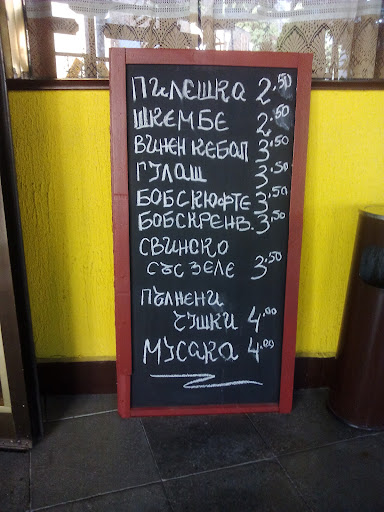 ПИЛЕШКА 2.50
ШКЕМБЕ 2.50
ВИНЕН КЕБАП 3.50
ГУЛАШ 3.50
БОБ С КЮФТЕ 3.50
БОБ С КРЕНВ. 3.50
СВИНСКО
СЪС ЗЕЛЕ 3.50
ПЪЛНЕНИ
ЧУШКИ 4.00
МУСАКА 4.00